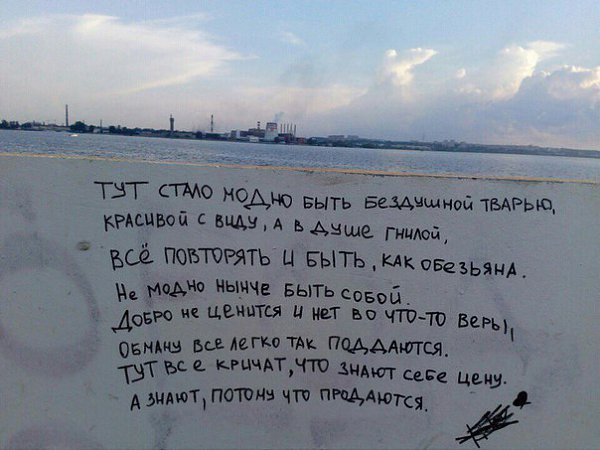 ТУТ СТАЛО МОДНО БЫТЬ БЕЗДУШНОЙ ТВАРЬЮ,
КРАСИВОЙ С ВИДУ, А В ДУШЕ ГНИЛОЙ,
ВСЁ ПОВТОРЯТЬ И БЫТЬ, КАК ОБЕЗЬЯНА.
НЕ МОДНО НЫНЧЕ БЫТЬ СОБОЙ.
ДОБРО НЕ ЦЕНИТСЯ И НЕТ ВО ЧТО-ТО ВЕРЫ,
ОБМАНУ ВСЕ ЛЕГКО ТАК ПОДДАЮТСЯ.
ТУТ ВСЕ КРИЧАТ, ЧТО ЗНАЮТ СЕБЕ ЦЕНУ.
А ЗНАЮТ, ПОТОМУ ЧТО ПРОДАЮТСЯ.